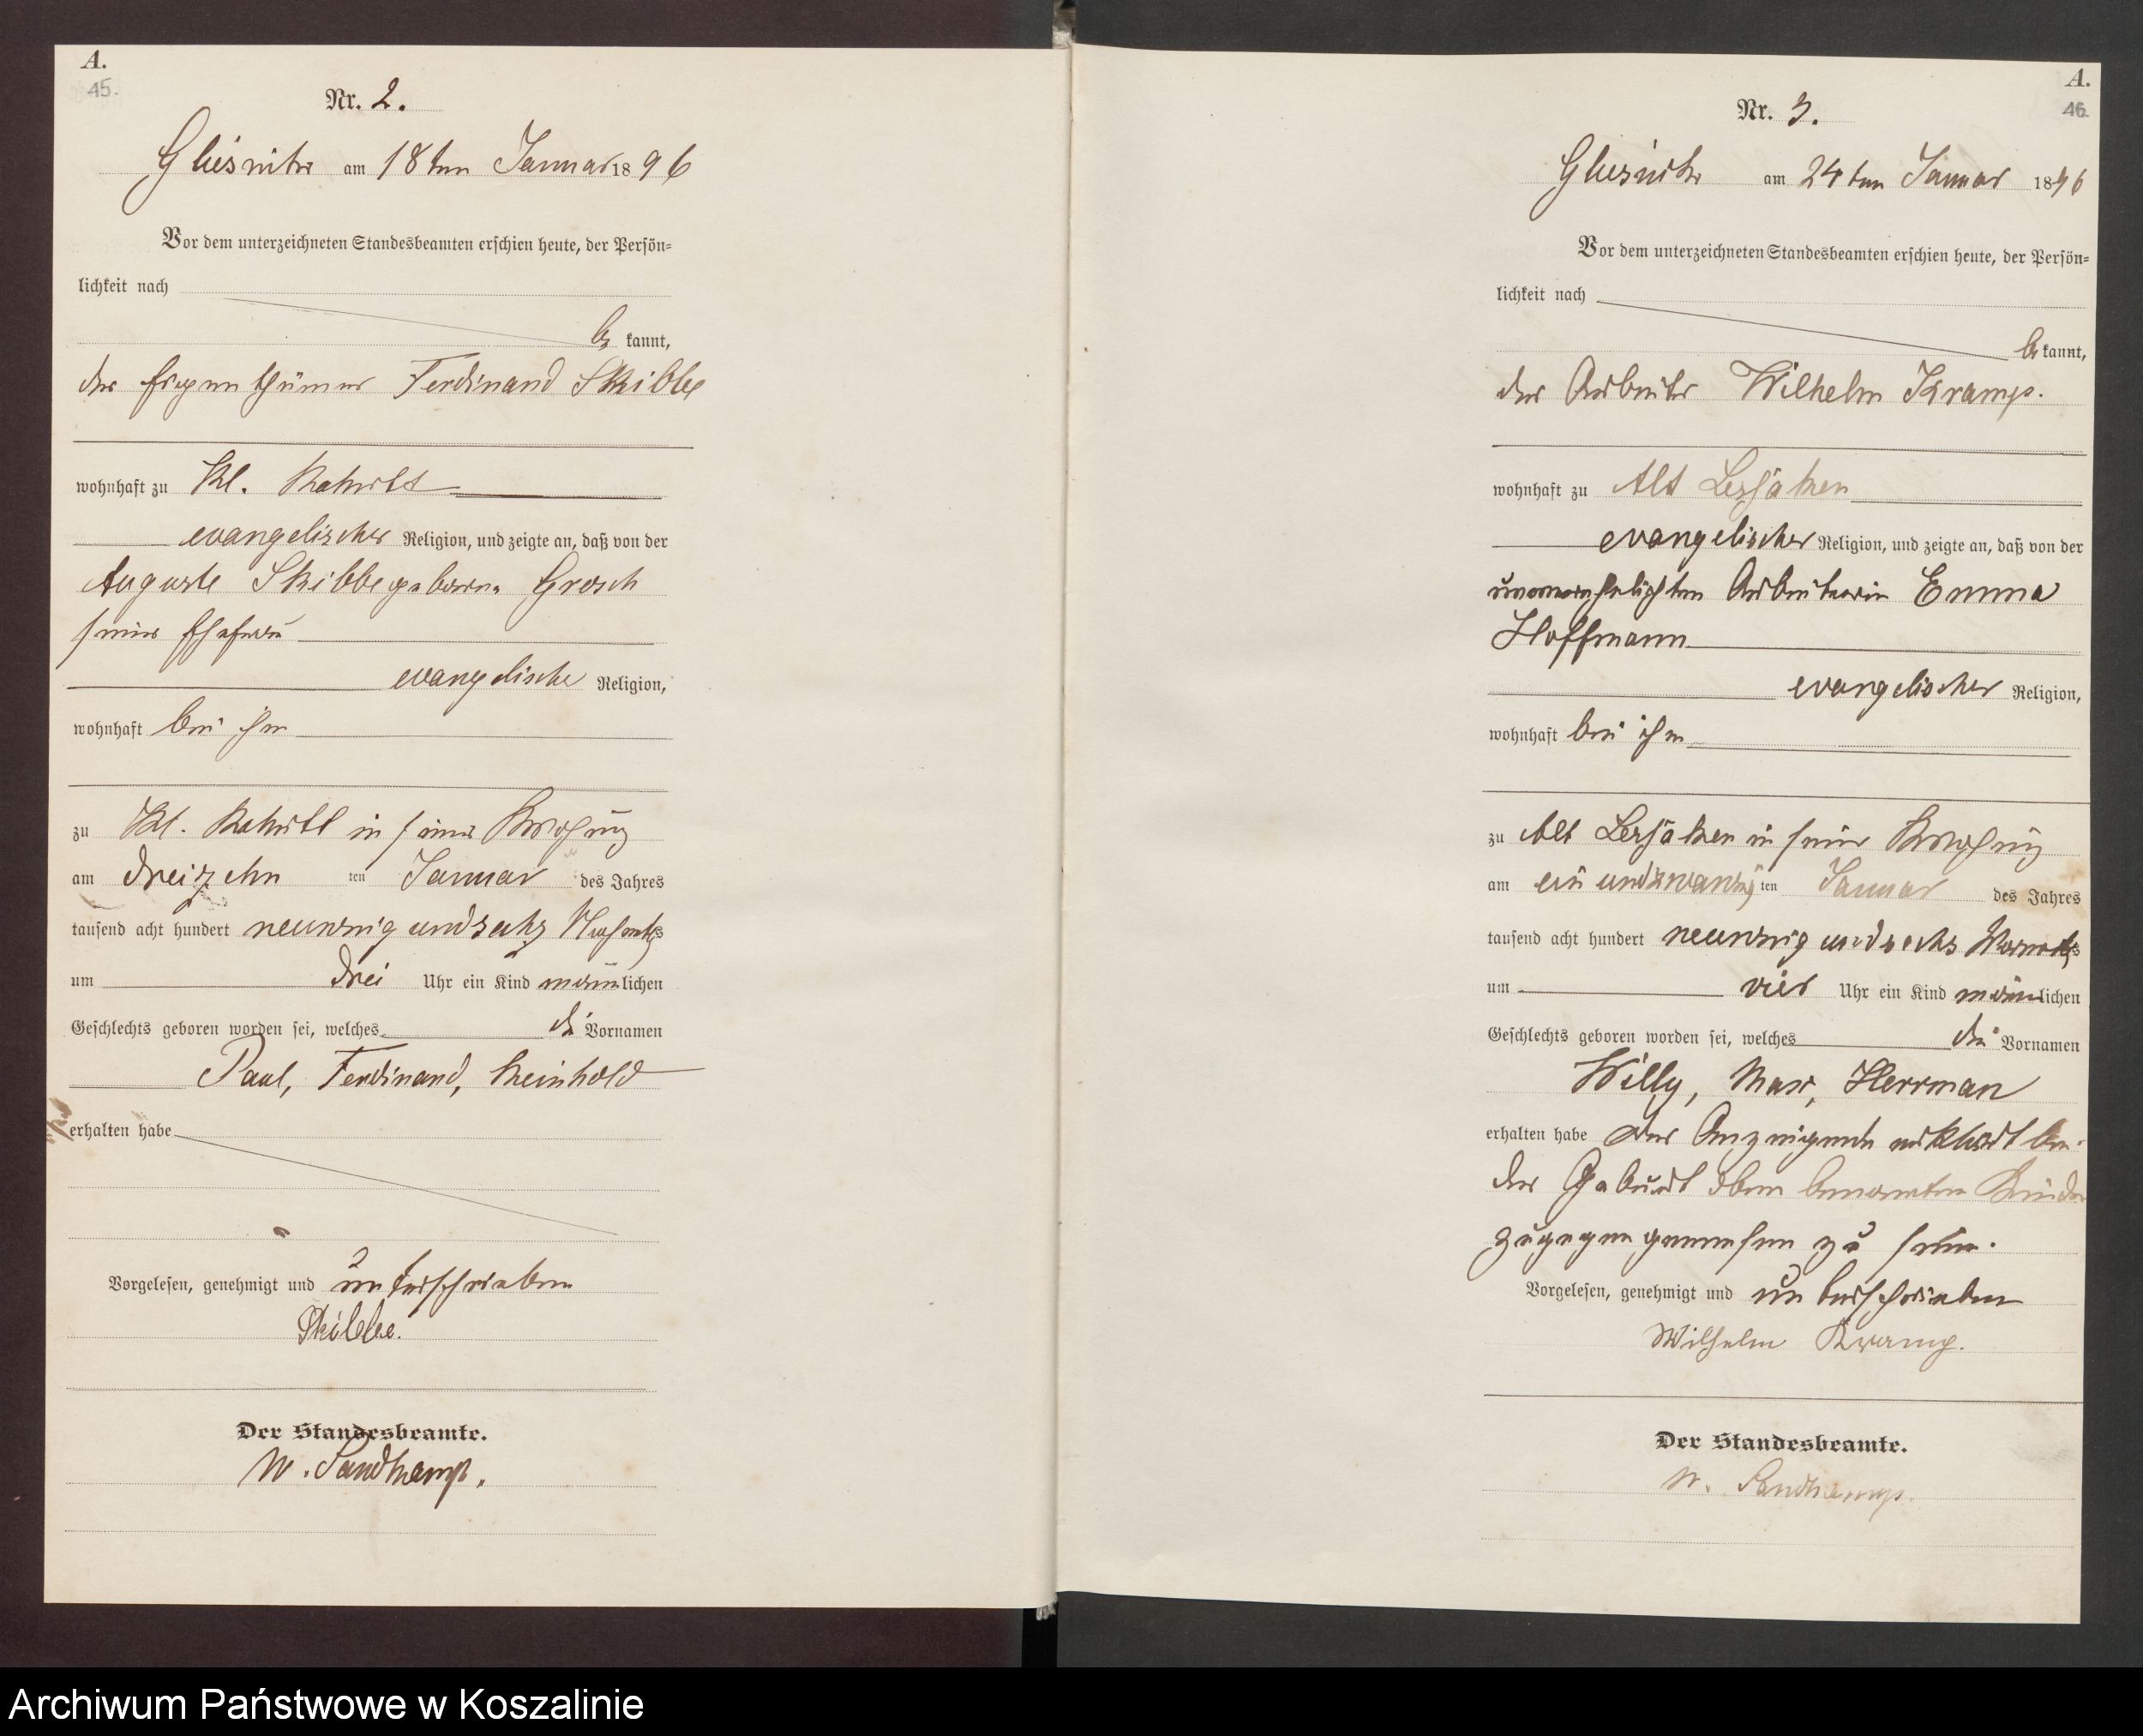 A.
45.
Nr. 2.
Gliesnitz am 18ten Januar 1896
Vor dem unterzeichneten Standesbeamten erschien heute, der Persön-
lichkeit nach
be kannt,
der Eigenthümer Ferdinand Skibbe
wohnhaft zu Kl. Rakitt
evangelischer Religion, und zeigte an, daß von der
Auguste Skibbe geborene Grosch
seiner Ehefrau
evangelische Religion,
wohnhaft bei ihm
zu Kl. in seiner Wohnung
am dreizehn ten Januar des Jahres
tausend acht hundert neunzig und sechs Nachmittags
um drei Uhr ein Kind männlichen
Geschlechts geboren worden sei, welches die Vornamen
Paul, Ferdinand, Reinhold
erhalten habe
Vorgelesen, genehmigt und unterschrieben
Skibbe.
Der Standesbeamte.
W. Sandkamp.
A.
46
Nr. 3.
am 24ten Januar 1896
Vor dem unterzeichneten Standesbeamten erschien heute, der Persön-
lichkeit nach
be kannt,
der Arbeiter Wilhelm Kramp.
wohnhaft zu Alt
evangelischer Religion, und zeigte an, daß von der
unverehelichten Arbeiterin Emma
Hoffmann
evangelischer Religion,
wohnhaft bei ihm
zu Alt in seiner Wohnung
am ein und zwanzig ten Januar des Jahres
tausend acht hundert neunzig und sechs Vormittags
um vier Uhr ein Kind männlichen
Geschlechts geboren worden sei, welches die Vornamen
Willy, Max, Herrman
erhalten habe der Anzeigende erklärt bei
der Geburt oben benannten Kindes
zugegen gewesen zu sein.
Vorgelesen, genehmigt und unterschrieben
Wilhelm Kramp.
Der Standesbeamte.
W. Sandkamp.
Archiwum Państwowe w Koszalinie